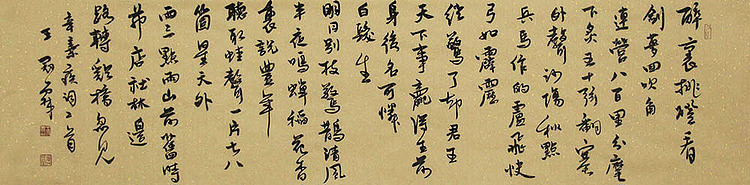 醉裏挑燈看
劍夢回吹角
連營八百里分麾
下炙五十弦翻塞
外聲沙場秋點
兵馬作的盧飛快
弓如霹靂
弦驚了却君王
天下事贏得生前
身後名可憐
白髮生
明月別枝驚鵲清風
半夜鳴蟬稻花香
裏說豐年
聽取蛙聲一片七八
箇星天外
兩三點雨山前舊時
茆店社林邊
路轉谿橋忽見
辛棄疾詞二首